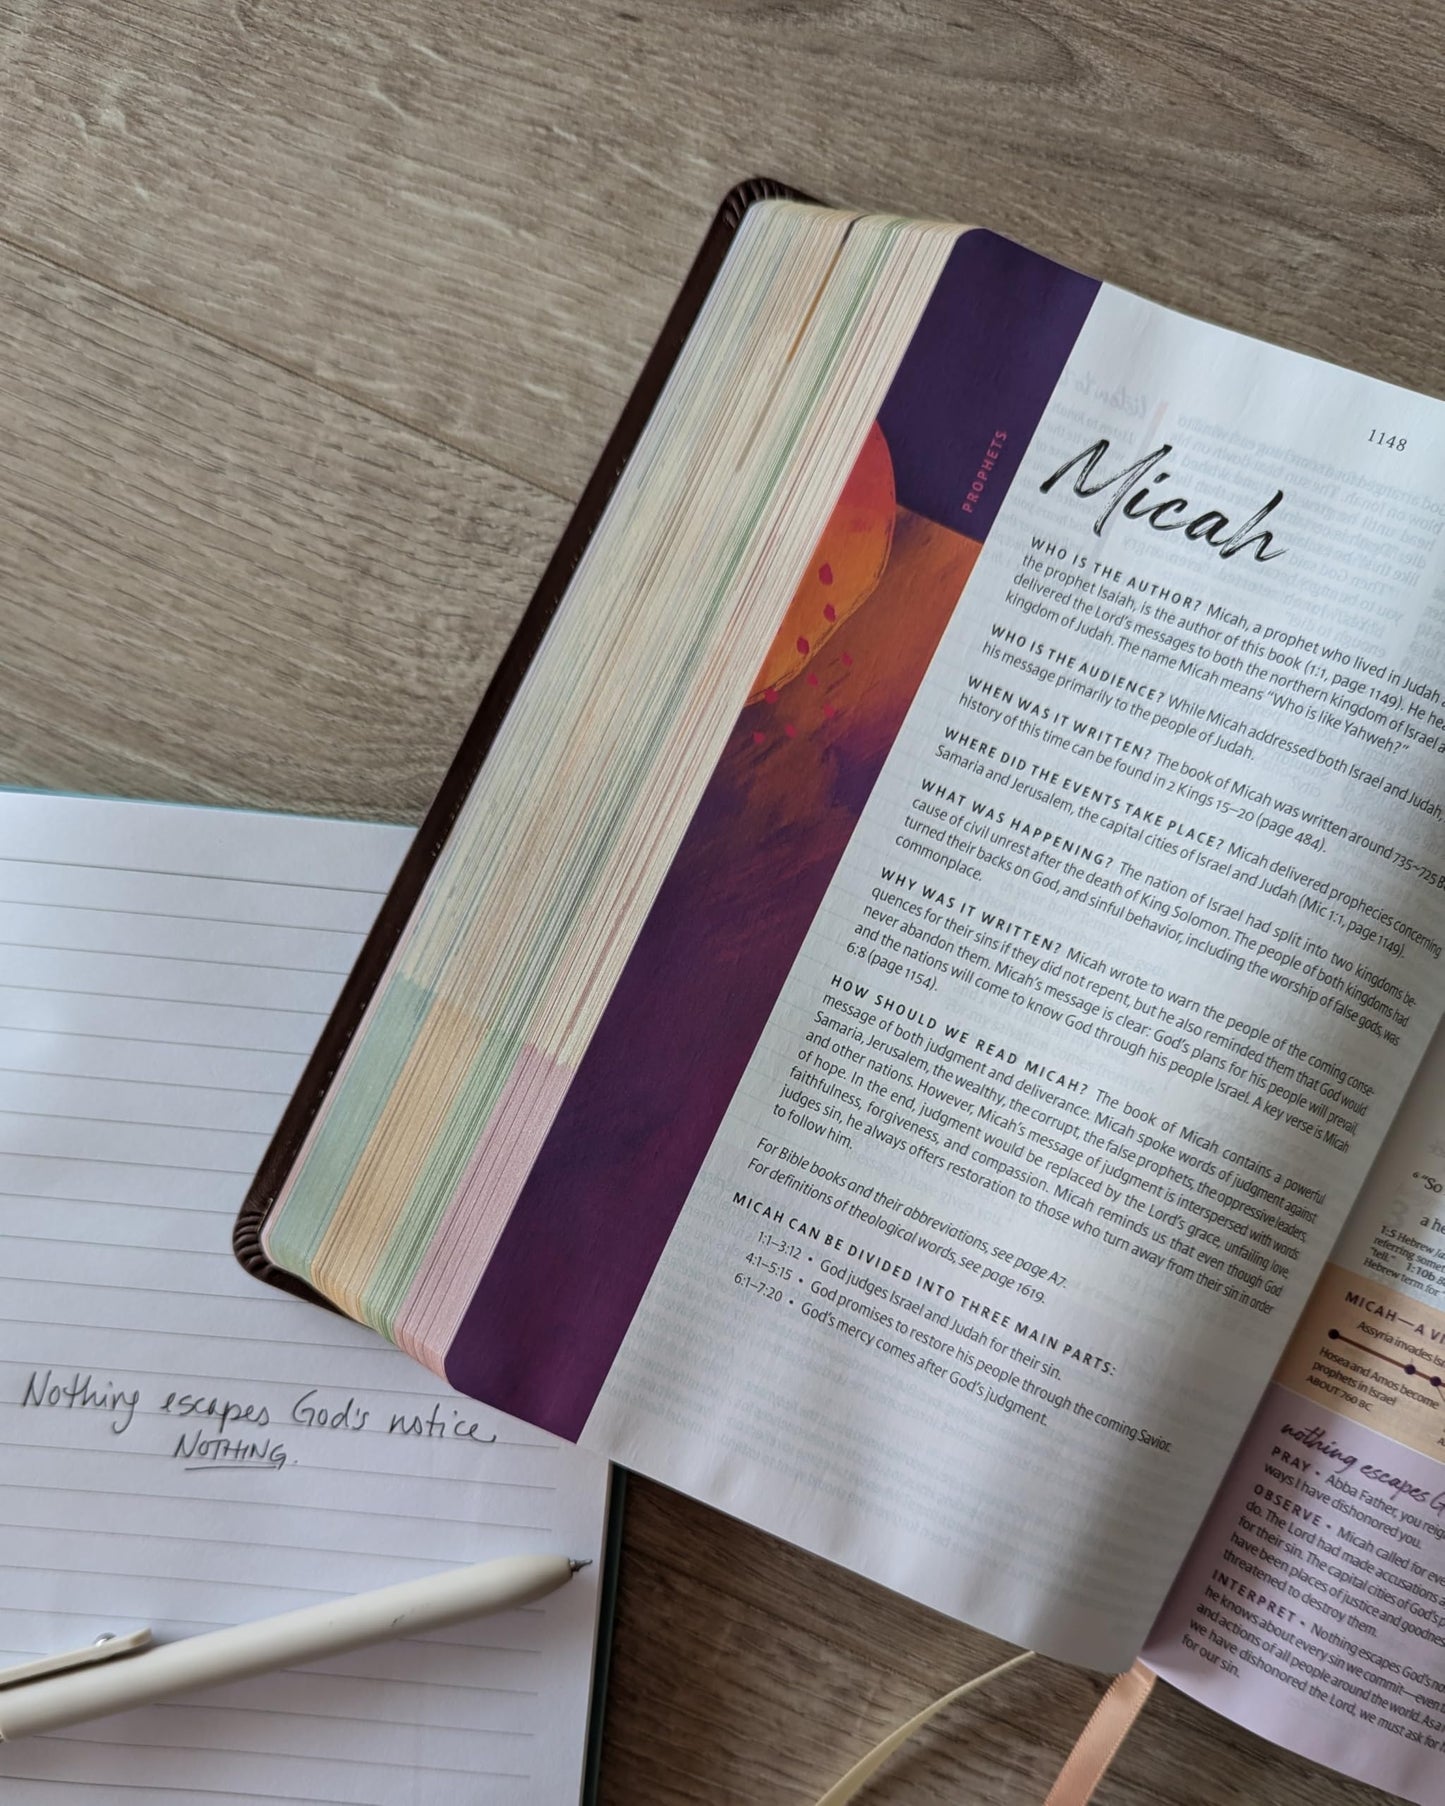 1148
PROPHETS
Micah
WHO IS THE AUTHOR? Micah, a prophet who lived in Judah
the prophet Isaiah, is the author of this book (1:1, page 1149). He
delivered the Lord's messages to both the northern kingdom of Israel
kingdom of Judah. The name Micah means "Who is like Yahweh?"
WHO IS THE AUDIENCE? While Micah addressed both Israel and Judah,
his message primarily to the people of Judah.
WHEN WAS IT WRITTEN? The book of Micah was written around 735–725
history of this time can be found in 2 Kings 15–20 (page 484).
WHERE DID THE EVENTS TAKE PLACE? Micah delivered prophecies concerning
Samaria and Jerusalem, the capital cities of Israel and Judah (Mic 1:1, page 1149).
WHAT WAS HAPPENING? The nation of Israel had split into two kingdoms be-
cause of civil unrest after the death of King Solomon. The people of both kingdoms had
turned their backs on God, and sinful behavior, including the worship of false gods, was
commonplace.
WHY WAS IT WRITTEN? Micah wrote to warn the people of the coming conse-
quences for their sins if they did not repent, but he also reminded them that God would
never abandon them. Micah's message is clear: God's plans for his people will prevail,
and the nations will come to know God through his people Israel. A key verse is Micah
6:8 (page 1154).
HOW SHOULD WE READ MICAH? The book of Micah contains a powerful
message of both judgment and deliverance. Micah spoke words of judgment against
Samaria, Jerusalem, the wealthy, the corrupt, the false prophets, the oppressive leaders,
and other nations. However, Micah's message of judgment is interspersed with words
of hope. In the end, judgment would be replaced by the Lord's grace, unfailing love,
faithfulness, forgiveness, and compassion. Micah reminds us that even though God
judges sin, he always offers restoration to those who turn away from their sin in order
to follow him.
For Bible books and their abbreviations, see page A7.
For definitions of theological words, see page 1619.
MICAH CAN BE DIVIDED INTO THREE MAIN PARTS:
1:1–3:12 • God judges Israel and Judah for their sin.
4:1–5:15 • God promises to restore his people through the coming Savior.
6:1–7:20 • God's mercy comes after God's judgment.
6 "So
a he
1:5 Hebrew
referring
"tell." 1:10b
Hebrew term for
MICAH—A
Assyria invades
Hosea and Amos become
prophets in Israel
ABOUT 760 BC
nothing escapes
PRAY • Abba Father, you
ways I have dishonored you.
OBSERVE • Micah called for
do. The Lord had made accusations
for their sin. The capital cities of God's
have been places of justice and
threatened to destroy them.
INTERPRET • Nothing escapes God's
he knows about every sin we commit—even
and actions of all people around the world. As
we have dishonored the Lord, we must ask for
for our sin.
Nothing escapes God's notice
NOTHING.